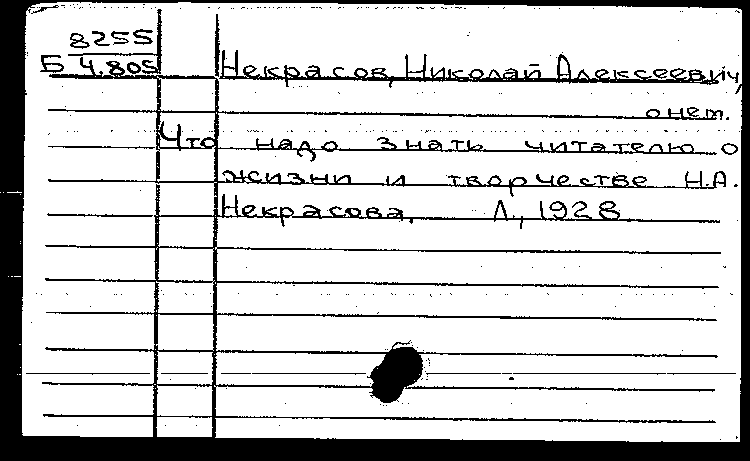 8255
Б 4.805
Некрасов, Николай Алексеевич,
о нем.
Что надо знать читателю о
жизни и творчестве Н.А.
Некрасова. Л., 1928